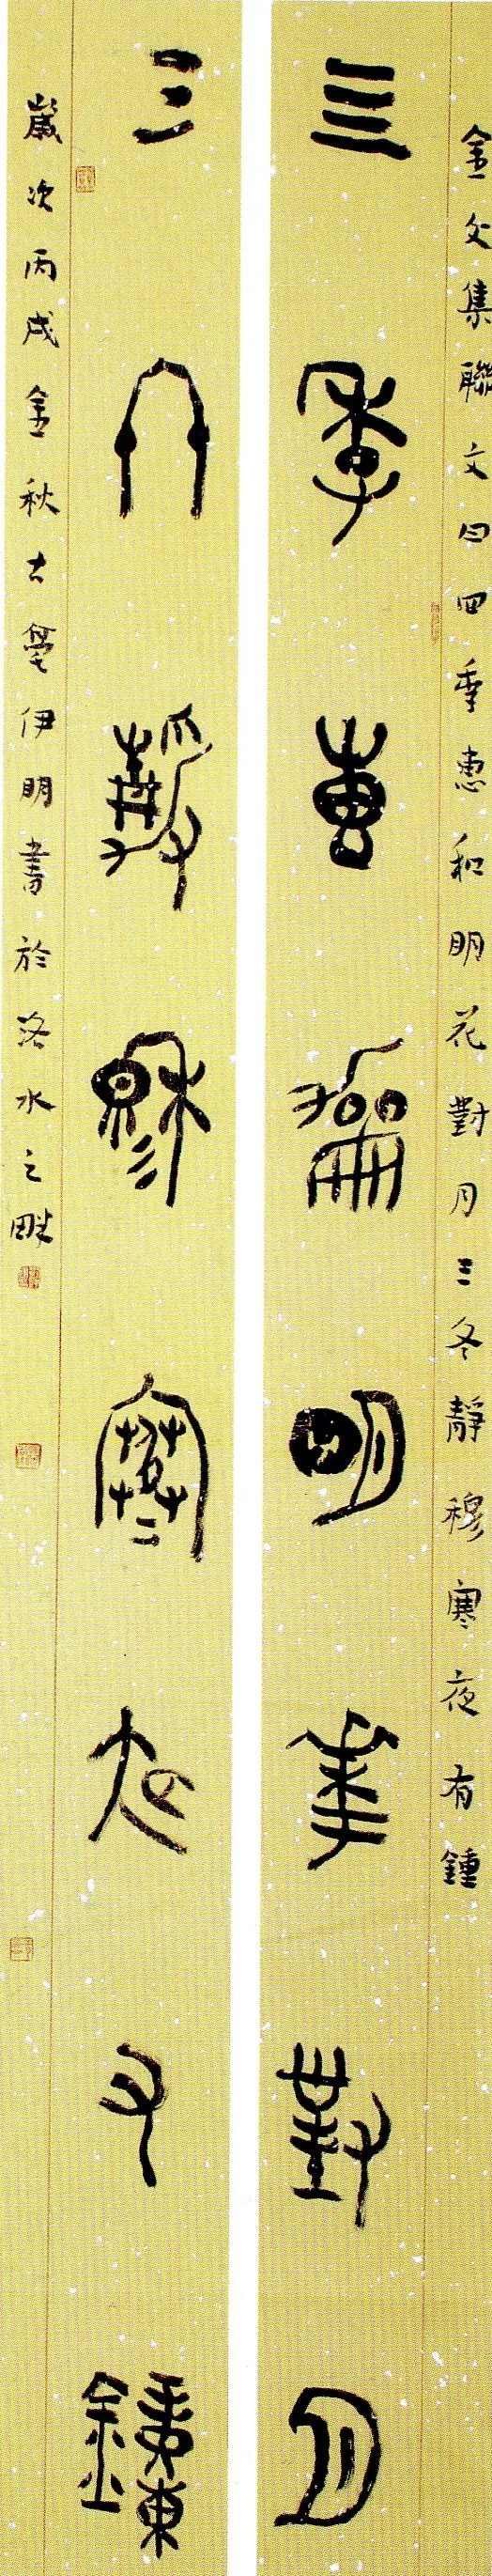 金文集聯文曰四季惠和明花對月三冬靜穆寒夜有鍾
四季惠龢明華對月
三冬靜穆寒夜又鐘
歲次丙戌金秋古亳伊明書於洛水之畔